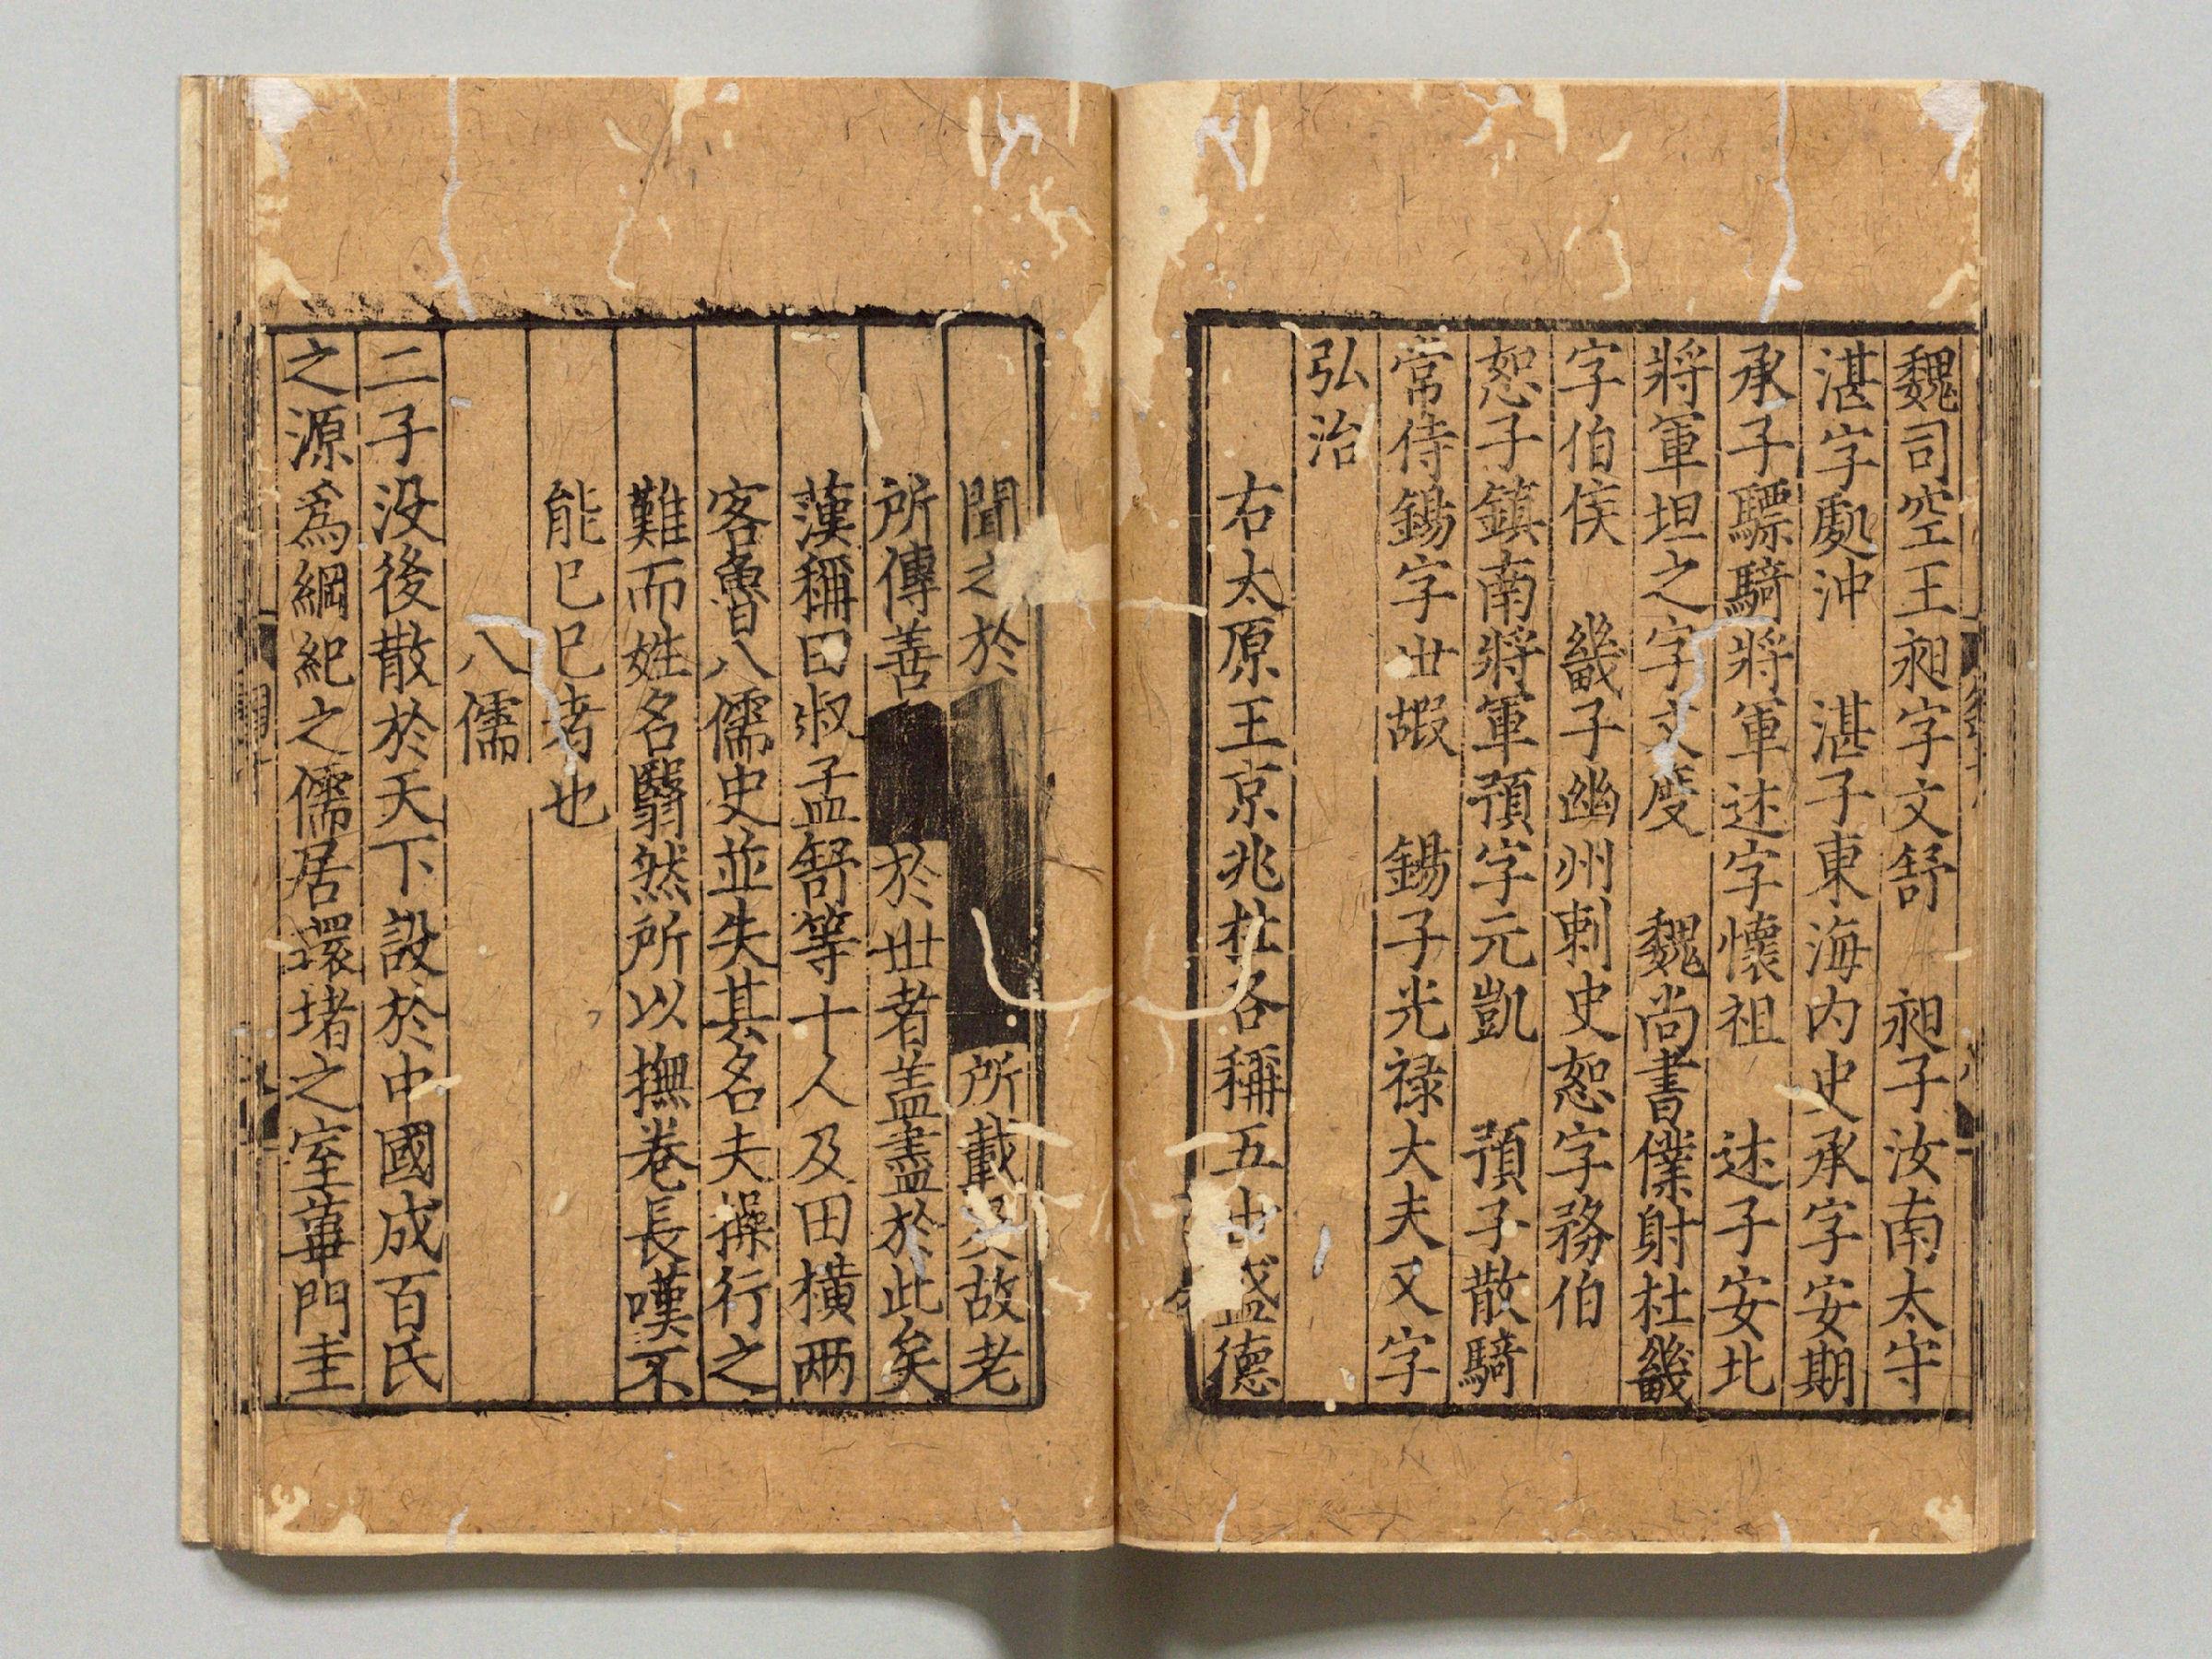 魏司空王昶字文舒　昶子汝南太守
湛字處沖　湛子東海内史承字安期
承子驃騎將軍述字懷祖　述子安北
將軍坦之字文度　魏尚書僕射杜畿
字伯侯　畿子幽州刺史恕字務伯
恕子鎮南將軍預字元凱　預子散騎
常侍錫字世嘏　錫子光禄大夫乂字
弘治
右太原王京兆杜各稱五世盛德
聞之於所載故老
所傳善於世者盖盡於此矣
漢稱田叔孟舒等十人及田横兩
客魯八儒史並失其名夫操行之
難而姓名翳然所以撫卷長嘆不
能已已者也
八儒
二子没後散於天下設於中國成百氏
之源爲綱紀之儒居環堵之室蓽門圭